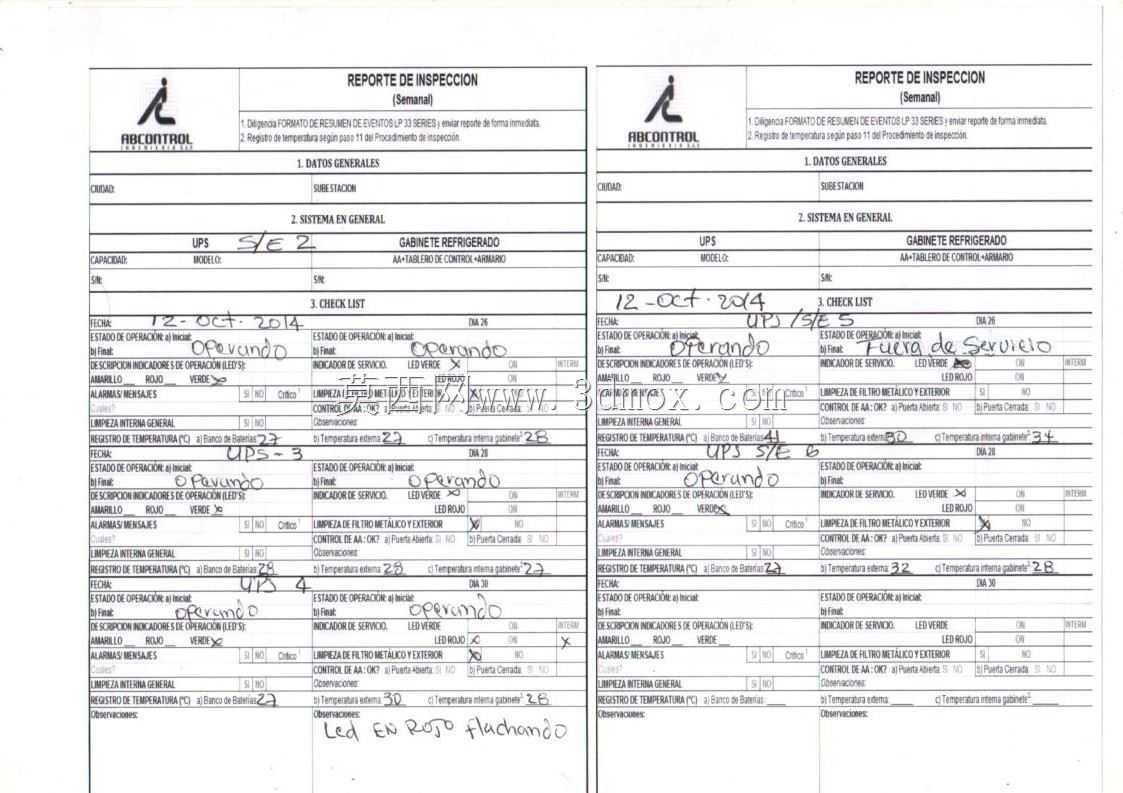 REPORTE DE INSPECCION
(Semanal)
1. Diligencia FORMATO DE RESUMEN DE EVENTOS LP 33 SERIES y enviar reporte de forma inmediata.
2. Registro de temperatura según paso 11 del Procedimiento de inspección.
ABCONTROL
INGENIERIA SAS
1. DATOS GENERALES
CIUDAD: SUBESTACION
2. SISTEMA EN GENERAL
UPS S/E 2 GABINETE REFRIGERADO
CAPACIDAD: MODELO: AA+TABLERO DE CONTROL+ARMARIO
S/N: S/N:
3. CHECK LIST
FECHA: 12-OCT. 2014 DIA 26
ESTADO DE OPERACIÓN: a) Inicial: ESTADO DE OPERACIÓN: a) Inicial:
b) Final: Operando b) Final: Operando
DESCRIPCION INDICADORES DE OPERACIÓN (LED'S): INDICADOR DE SERVICIO. LED VERDE X ON INTERM
AMARILLO ROJO VERDE X LED ROJO ON
ALARMAS/ MENSAJES SI NO Critico 1 LIMPIEZA DE FILTRO METÁLICO Y EXTERIOR X NO
Cuales? CONTROL DE AA: OK? a) Puerta Abierta: SI NO b) Puerta Cerrada: SI NO
LIMPIEZA INTERNA GENERAL SI NO Observaciones:
REGISTRO DE TEMPERATURA (°C) a) Banco de Baterías 27 b) Temperatura externa: 27 c) Temperatura interna gabinete 2: 28
FECHA: UPS-3 DIA 28
ESTADO DE OPERACIÓN: a) Inicial: ESTADO DE OPERACIÓN: a) Inicial:
b) Final: Operando b) Final: Operando
DESCRIPCION INDICADORES DE OPERACIÓN (LED'S): INDICADOR DE SERVICIO. LED VERDE X ON INTERM
AMARILLO ROJO VERDE X LED ROJO ON
ALARMAS/ MENSAJES SI NO Critico 1 LIMPIEZA DE FILTRO METÁLICO Y EXTERIOR X NO
Cuales? CONTROL DE AA: OK? a) Puerta Abierta: SI NO b) Puerta Cerrada: SI NO
LIMPIEZA INTERNA GENERAL SI NO Observaciones:
REGISTRO DE TEMPERATURA (°C) a) Banco de Baterías 28 b) Temperatura externa: 28 c) Temperatura interna gabinete 2: 27
FECHA: UPS 4 DIA 30
ESTADO DE OPERACIÓN: a) Inicial: ESTADO DE OPERACIÓN: a) Inicial:
b) Final: operando b) Final: operando
DESCRIPCION INDICADORES DE OPERACIÓN (LED'S): INDICADOR DE SERVICIO. LED VERDE ON INTERM
AMARILLO ROJO VERDE X LED ROJO X ON X
ALARMAS/ MENSAJES SI NO Critico 1 LIMPIEZA DE FILTRO METÁLICO Y EXTERIOR X NO
Cuales? CONTROL DE AA: OK? a) Puerta Abierta: SI NO b) Puerta Cerrada: SI NO
LIMPIEZA INTERNA GENERAL SI NO Observaciones:
REGISTRO DE TEMPERATURA (°C) a) Banco de Baterías 27 b) Temperatura externa: 30 c) Temperatura interna gabinete 2: 28
Observaciones: Observaciones:
Led EN ROJO flachando
REPORTE DE INSPECCION
(Semanal)
1. Diligencia FORMATO DE RESUMEN DE EVENTOS LP 33 SERIES y enviar reporte de forma inmediata.
2. Registro de temperatura según paso 11 del Procedimiento de inspección.
ABCONTROL
INGENIERIA SAS
1. DATOS GENERALES
CIUDAD: SUBESTACION
2. SISTEMA EN GENERAL
UPS GABINETE REFRIGERADO
CAPACIDAD: MODELO: AA+TABLERO DE CONTROL+ARMARIO
S/N: S/N:
12-OCT. 2014 3. CHECK LIST
FECHA: UPS /S/E 5 DIA 26
ESTADO DE OPERACIÓN: a) Inicial: ESTADO DE OPERACIÓN: a) Inicial:
b) Final: Operando b) Final: Fuera de Servicio
DESCRIPCION INDICADORES DE OPERACIÓN (LED'S): INDICADOR DE SERVICIO. LED VERDE ON INTERM
AMARILLO ROJO VERDE X LED ROJO ON
ALARMAS/ MENSAJES SI NO Critico 1 LIMPIEZA DE FILTRO METÁLICO Y EXTERIOR SI NO
Cuales? CONTROL DE AA: OK? a) Puerta Abierta: SI NO b) Puerta Cerrada: SI NO
LIMPIEZA INTERNA GENERAL SI NO Observaciones:
REGISTRO DE TEMPERATURA (°C) a) Banco de Baterías 41 b) Temperatura externa: 30 c) Temperatura interna gabinete 2: 34
FECHA: UPS S/E 6 DIA 28
ESTADO DE OPERACIÓN: a) Inicial: ESTADO DE OPERACIÓN: a) Inicial:
b) Final: Operando b) Final:
DESCRIPCION INDICADORES DE OPERACIÓN (LED'S): INDICADOR DE SERVICIO. LED VERDE X ON INTERM
AMARILLO ROJO VERDE X LED ROJO ON
ALARMAS/ MENSAJES SI NO Critico 1 LIMPIEZA DE FILTRO METÁLICO Y EXTERIOR X NO
Cuales? CONTROL DE AA: OK? a) Puerta Abierta: SI NO b) Puerta Cerrada: SI NO
LIMPIEZA INTERNA GENERAL SI NO Observaciones:
REGISTRO DE TEMPERATURA (°C) a) Banco de Baterías 27 b) Temperatura externa: 32 c) Temperatura interna gabinete 2: 28
FECHA: DIA 30
ESTADO DE OPERACIÓN: a) Inicial: ESTADO DE OPERACIÓN: a) Inicial:
b) Final: b) Final:
DESCRIPCION INDICADORES DE OPERACIÓN (LED'S): INDICADOR DE SERVICIO. LED VERDE ON INTERM
AMARILLO ROJO VERDE LED ROJO ON
ALARMAS/ MENSAJES SI NO Critico 1 LIMPIEZA DE FILTRO METÁLICO Y EXTERIOR SI NO
Cuales? CONTROL DE AA: OK? a) Puerta Abierta: SI NO b) Puerta Cerrada: SI NO
LIMPIEZA INTERNA GENERAL SI NO Observaciones:
REGISTRO DE TEMPERATURA (°C) a) Banco de Baterías: b) Temperatura externa: c) Temperatura interna gabinete 2:
Observaciones: Observaciones:
www.3dmox.com